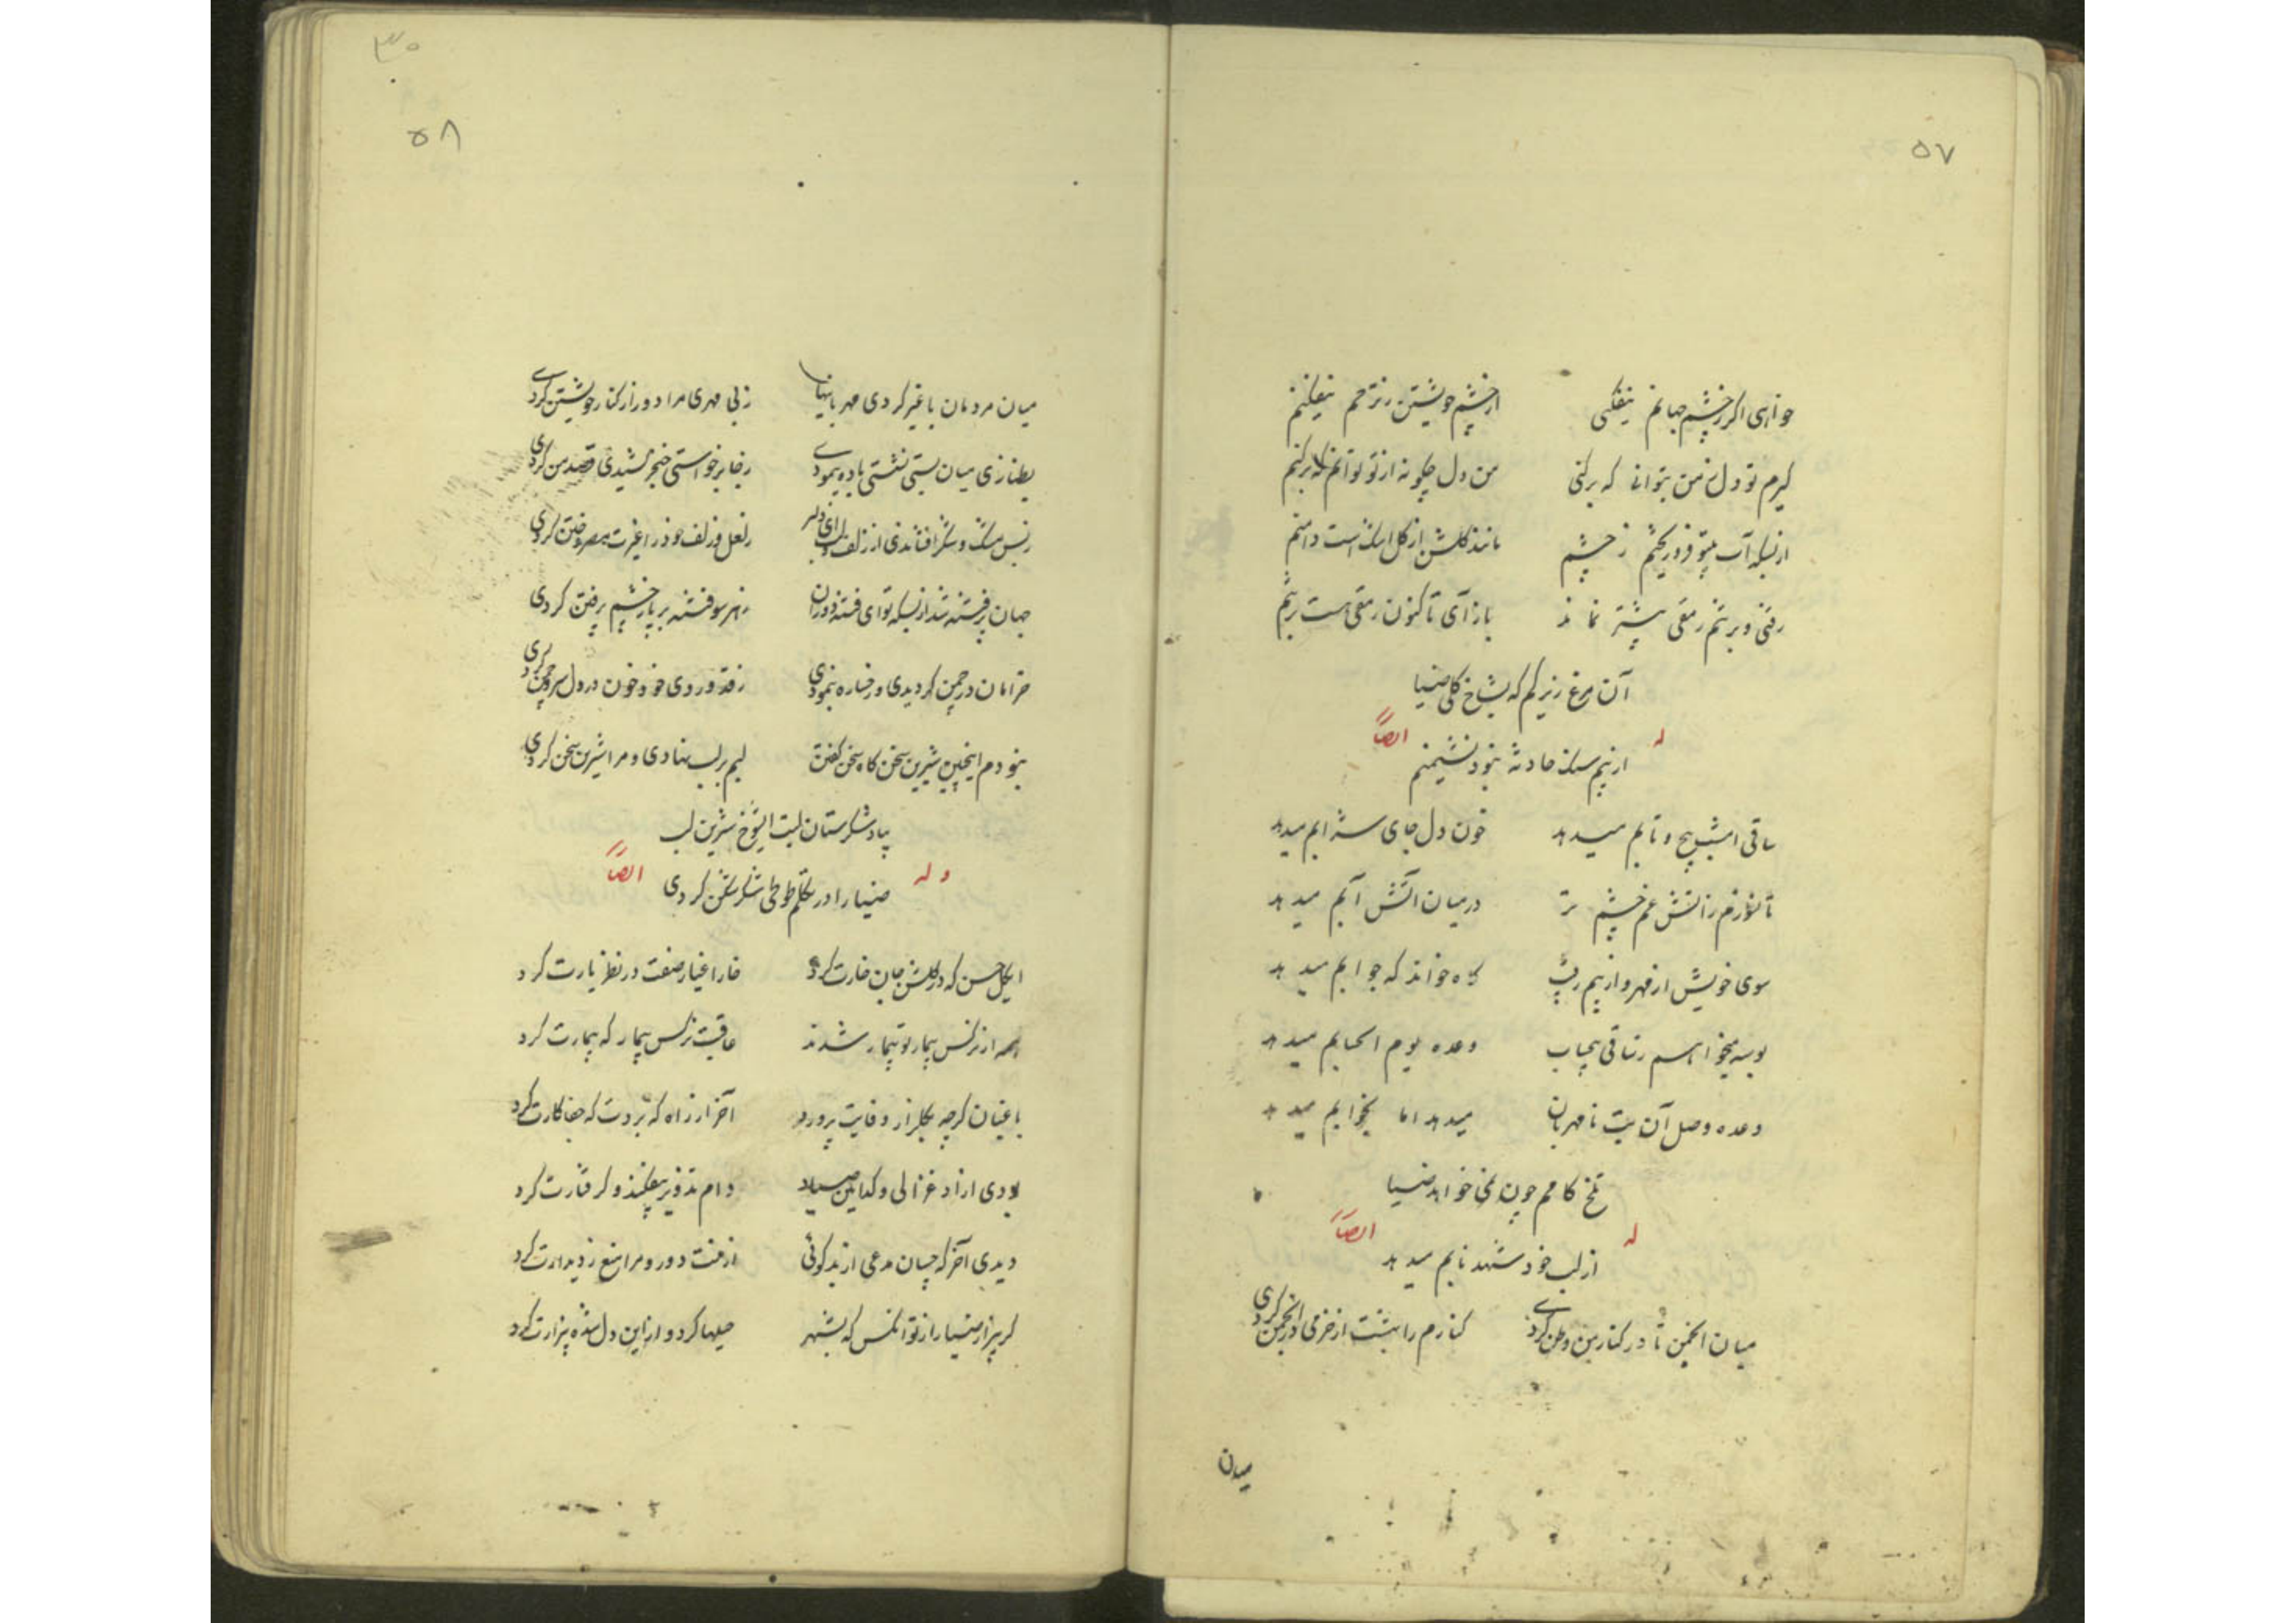 ۵۷
خواهی اگر ز چشم جهانم بیفکنی از چشم خویشتن ز ترحم بیفکنم
گیرم تو دل ز من بتوانی که برکنی من دل چگونه از تو توانم که برکنم
از بسکه آب بیتو فرو ریختم ز چشم مانند گلشن از گل اشکست دامنم
رفتی و بر تنم رمقی بیشتر نماند بازآی تا کنون رمقی هست بر تنم
آن مرغ زیرکم که بشاخ گلی ضیا
له ایضاً
از بیم سنک حادثه نبود نشیمنم
ساقی امشب پیچ و تابم میدهد خون دل جای شرابم میدهد
تا ز آتش غم چشم تر درمیان آتش آبم میدهد
سوی خویش از قهر و از بیم رقیب گاه خواند گه جوابم میدهد
بوسه میخواهم ز ساقی بیحساب وعده یوم الحسابم میدهد
وعده وصل آن بت نامهربان میدهد اما بخوابم میدهد
تلخ کامم چون نمی خواهد ضیا
له ایضاً
از لب خود شهد نابم میدهد
میان انجمن تا در کنار من وطن کردی کنارم را بهشت از خرمی در انجمن کردی
میان
۳۰
۵۸
میان مردمان با غیر کردی مهربانیها ز بی مهری مرا دور از کنار خویشتن کردی
بطنازی میان بستی نشستی باده پیمودی ز جا برخواستی خنجر کشیدی قصد من کردی
ز بس مشک و شکر افشاندی از زلف و لب ای دلبر ز لعل و زلف خود را غیرت مصر و ختن کردی
جهان پر فتنه شد از بسکه تو ای فتنه دوران بهر سو فتنه بر پا ز چشم پر فتن کردی
خرامان در چمن گردیدی و رخساره بنمودی ز قد و روی خود خون در دل سرو و چمن کردی
نبودم اینچنین شیرین سخن گاه سخن گفتن لبم بر لب نهادی و مرا شیرین سخن کردی
بیاد شکرستان لبت ایشوخ شیرین لب
وله ایضاً
ضیا را در تکلم طوطی شکرشکن کردی
ایگل حسن که در گلشن جان خارت کرد خار اغیار صفت در نظر یارت کرد
همه از نرگس بیمار تو بیمار شدند عاقبت نرگس بیمار که بیمارت کرد
باغبان گرچه بگلزار وفایت پرورد آخر از راه که بردت که جفا کارت کرد
بودی آزاد غزالی و کدامین صیاد دام تزویر بیفکند و گرفتارت کرد
دیدی آخر که چسان مدعی از بدگوئی از منت دور و مرا منع ز دیدارت کرد
گریزار ضیا را ز تو آنکس که بشهر حیلها کرد و از این دل شده بیزارت کرد